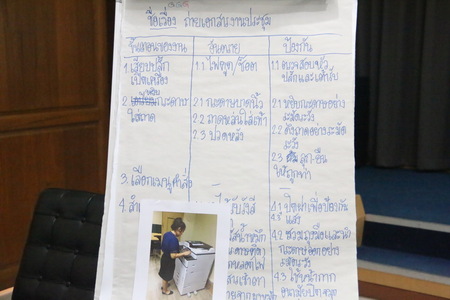 ชื่อเรื่อง ถ่ายเอกสารงานประชุม
ขั้นตอนของงาน
อันตราย
ป้องกัน
1. เสียบปลั๊ก
เปิดเครื่อง
1.1 ไฟดูด/ช็อต
1.1 ตรวจสอบขั้ว
ปลั๊กและเต้ารับ
2. หยิบกระดาษ
ใส่ถาด
2.1 กระดาษบาดนิ้ว
2.2 ถาดหล่นใส่เท้า
2.3 ปวดหลัง
2.1 หยิบกระดาษอย่าง
ระมัดระวัง
2.2 ดึงถาดอย่างระมัด
ระวัง
2.3 ลุก-ยืน
ให้ถูกท่า
3. เลือกเมนูคำสั่ง
4.
รังสี
4.1 ปิดฝาเพื่อป้องกัน
แสง
4.2 สวมถุงมือและนำ
กระดาษออกอย่าง
ระมัดระวัง
4.3 ใช้หน้ากาก